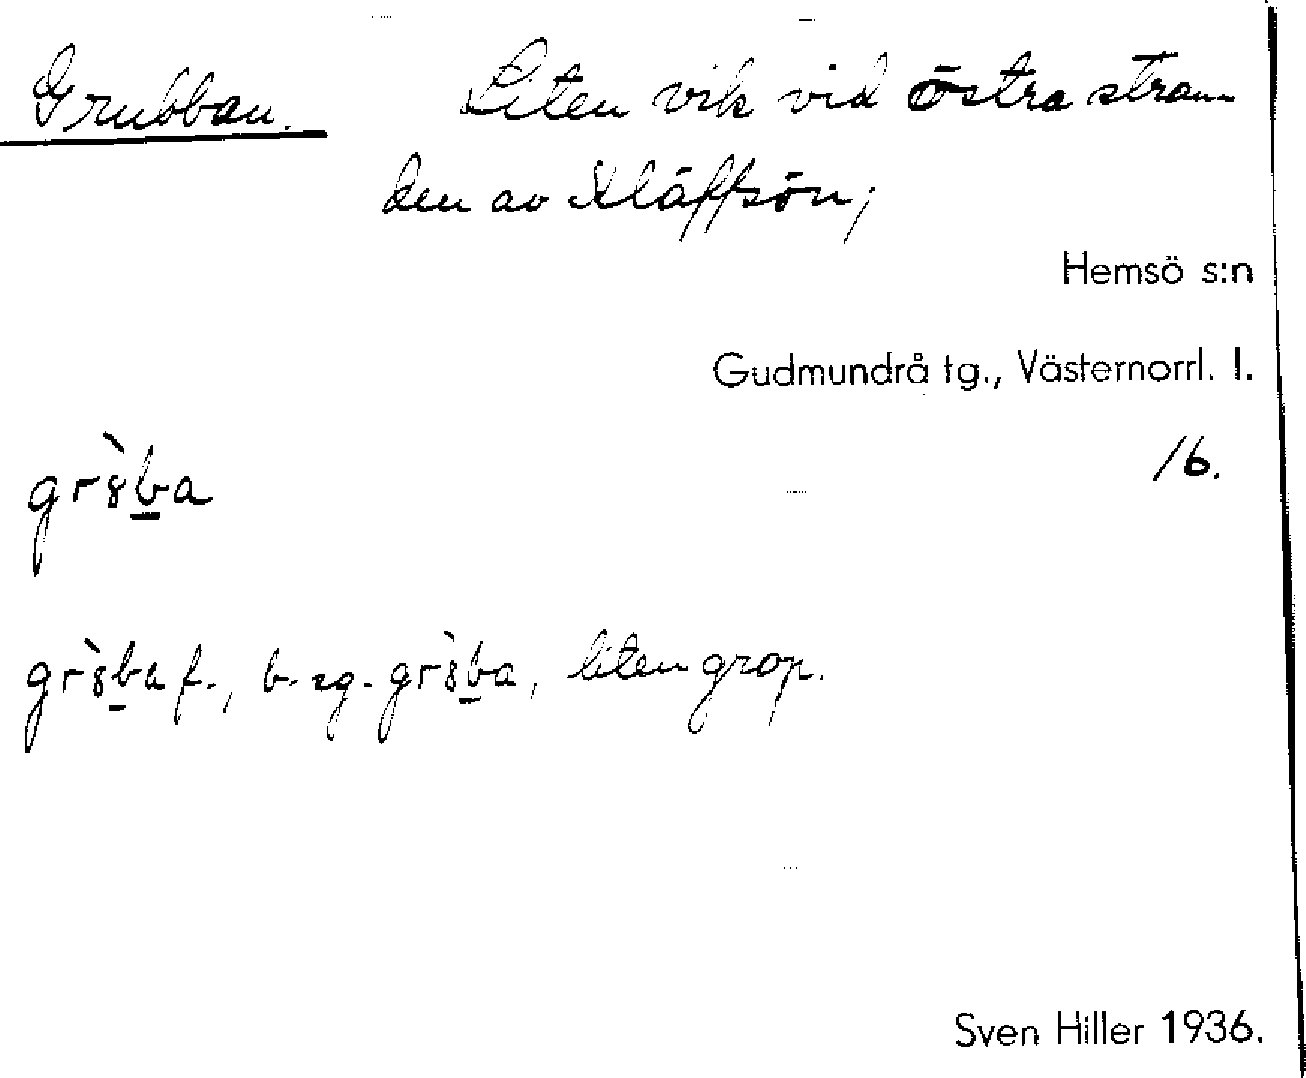 Grubban. Liten vik vid östra stran-
den av Kläffsön;
Hemsö s:n
Gudmundrå tg., Västernorrl. l.
16.
gr8̀b̲a
gr8̀b̲a f., b. sg. gr8̀b̲a, liten grop.
Sven Hiller 1936.